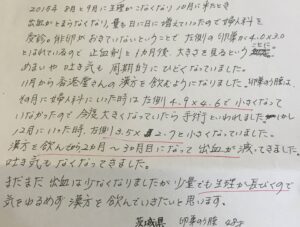 2018年8月と9月に生理がこなくなり 10月に来たとき
出血が止まらなくなり、量も日に日に増えていったので婦人科を
受診。排卵がおきていないということで 左側の卵巣が4.0×3.0
とはれているので 止血剤と1カ月後、大きさを見るということに
めまいや吐き気も 周期的にひどくなっていました。
11月から香港屋さんの漢方を飲んでいました。卵巣のう腫は
11月に婦人科にいた時は 左側4.9×4.6と小さくなって
いなかったので 今度大きくなっていたら手術といわれました しかし
12月にいた時、左側3.5×2.9と小さくなっていました。
漢方を飲んでから2カ月〜3カ月目になって出血が減ってきました。
吐き気もなくなってきました。
まだまだ出血は少なくなりましたが 少量でも生理が長びくので
気をゆるめず 漢方を飲んでいきたいと思います。
茨城県 卵巣のう腫 48才